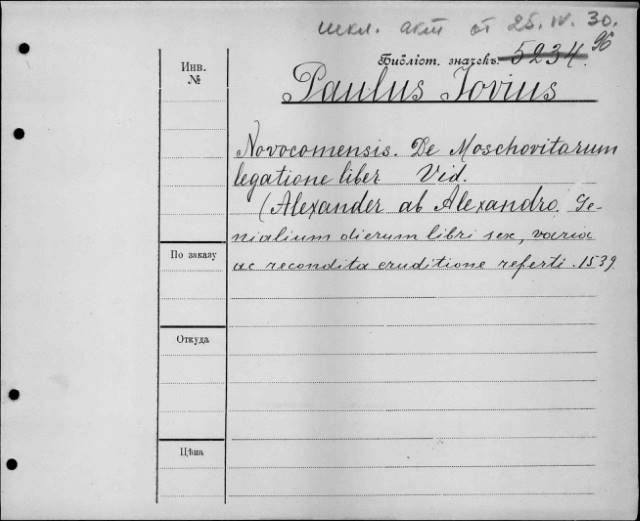 искл. акт от 25.IV.30.
Библіот. значекъ 5234. 96
Инв.
№
Paulus Iovius
Novocomensis. De Moschovitarum
legatione liber Vid.
(Alexander ab Alexandro, Ge-
nialium dierum libri sex, varia
ac recondita eruditione referti. 1539
По заказу
Откуда
Цѣна